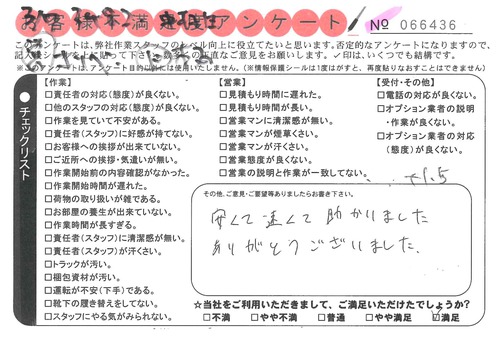 お客様不満足度アンケート
№ 066436
このアンケートは、弊社作業スタッフのレベル向上に役立てたいと思います。否定的なアンケートになりますので、
正直なご意見をお願いします。✓印は、いくつでも結構です。
【作業】
□責任者の対応(態度)が良くない。
□他のスタッフの対応(態度)が良くない。
□作業を見ていて不安がある。
□責任者(スタッフ)に好感が持てない。
□お客様への挨拶が出来ていない。
□ご近所への挨拶・気遣いが無い。
□作業開始前の内容確認がなかった。
□作業開始時間が遅れた。
□荷物の取り扱いが雑である。
□お部屋の養生が出来ていない。
□作業時間が長すぎる。
□責任者(スタッフ)に清潔感が無い。
□責任者(スタッフ)が汗くさい。
□トラックが汚い。
□梱包資材が汚い。
□運転が不安(下手)である。
□靴下の履き替えをしてない。
□スタッフにやる気がみられない。
【営業】
□見積もり時間に遅れた。
□見積もり時間が長い。
□営業マンに清潔感が無い。
□営業マンが煙草くさい。
□営業マンが汗くさい。
□営業態度が良くない。
□営業の説明と作業が一致してない。
【受付・その他】
□電話の対応が良くない。
□オプション業者の説明
・作業が良くない。
□オプション業者の対応
(態度)が良くない。
● チェックリスト
その他、ご意見・ご要望等ありましたらお書き下さい。
安くて速くて助かりました
ありがとうございました.
☆当社をご利用いただきまして、ご満足いただけてしょうか?
□不満 □やや不満 □普通 □やや満足 ☑満足